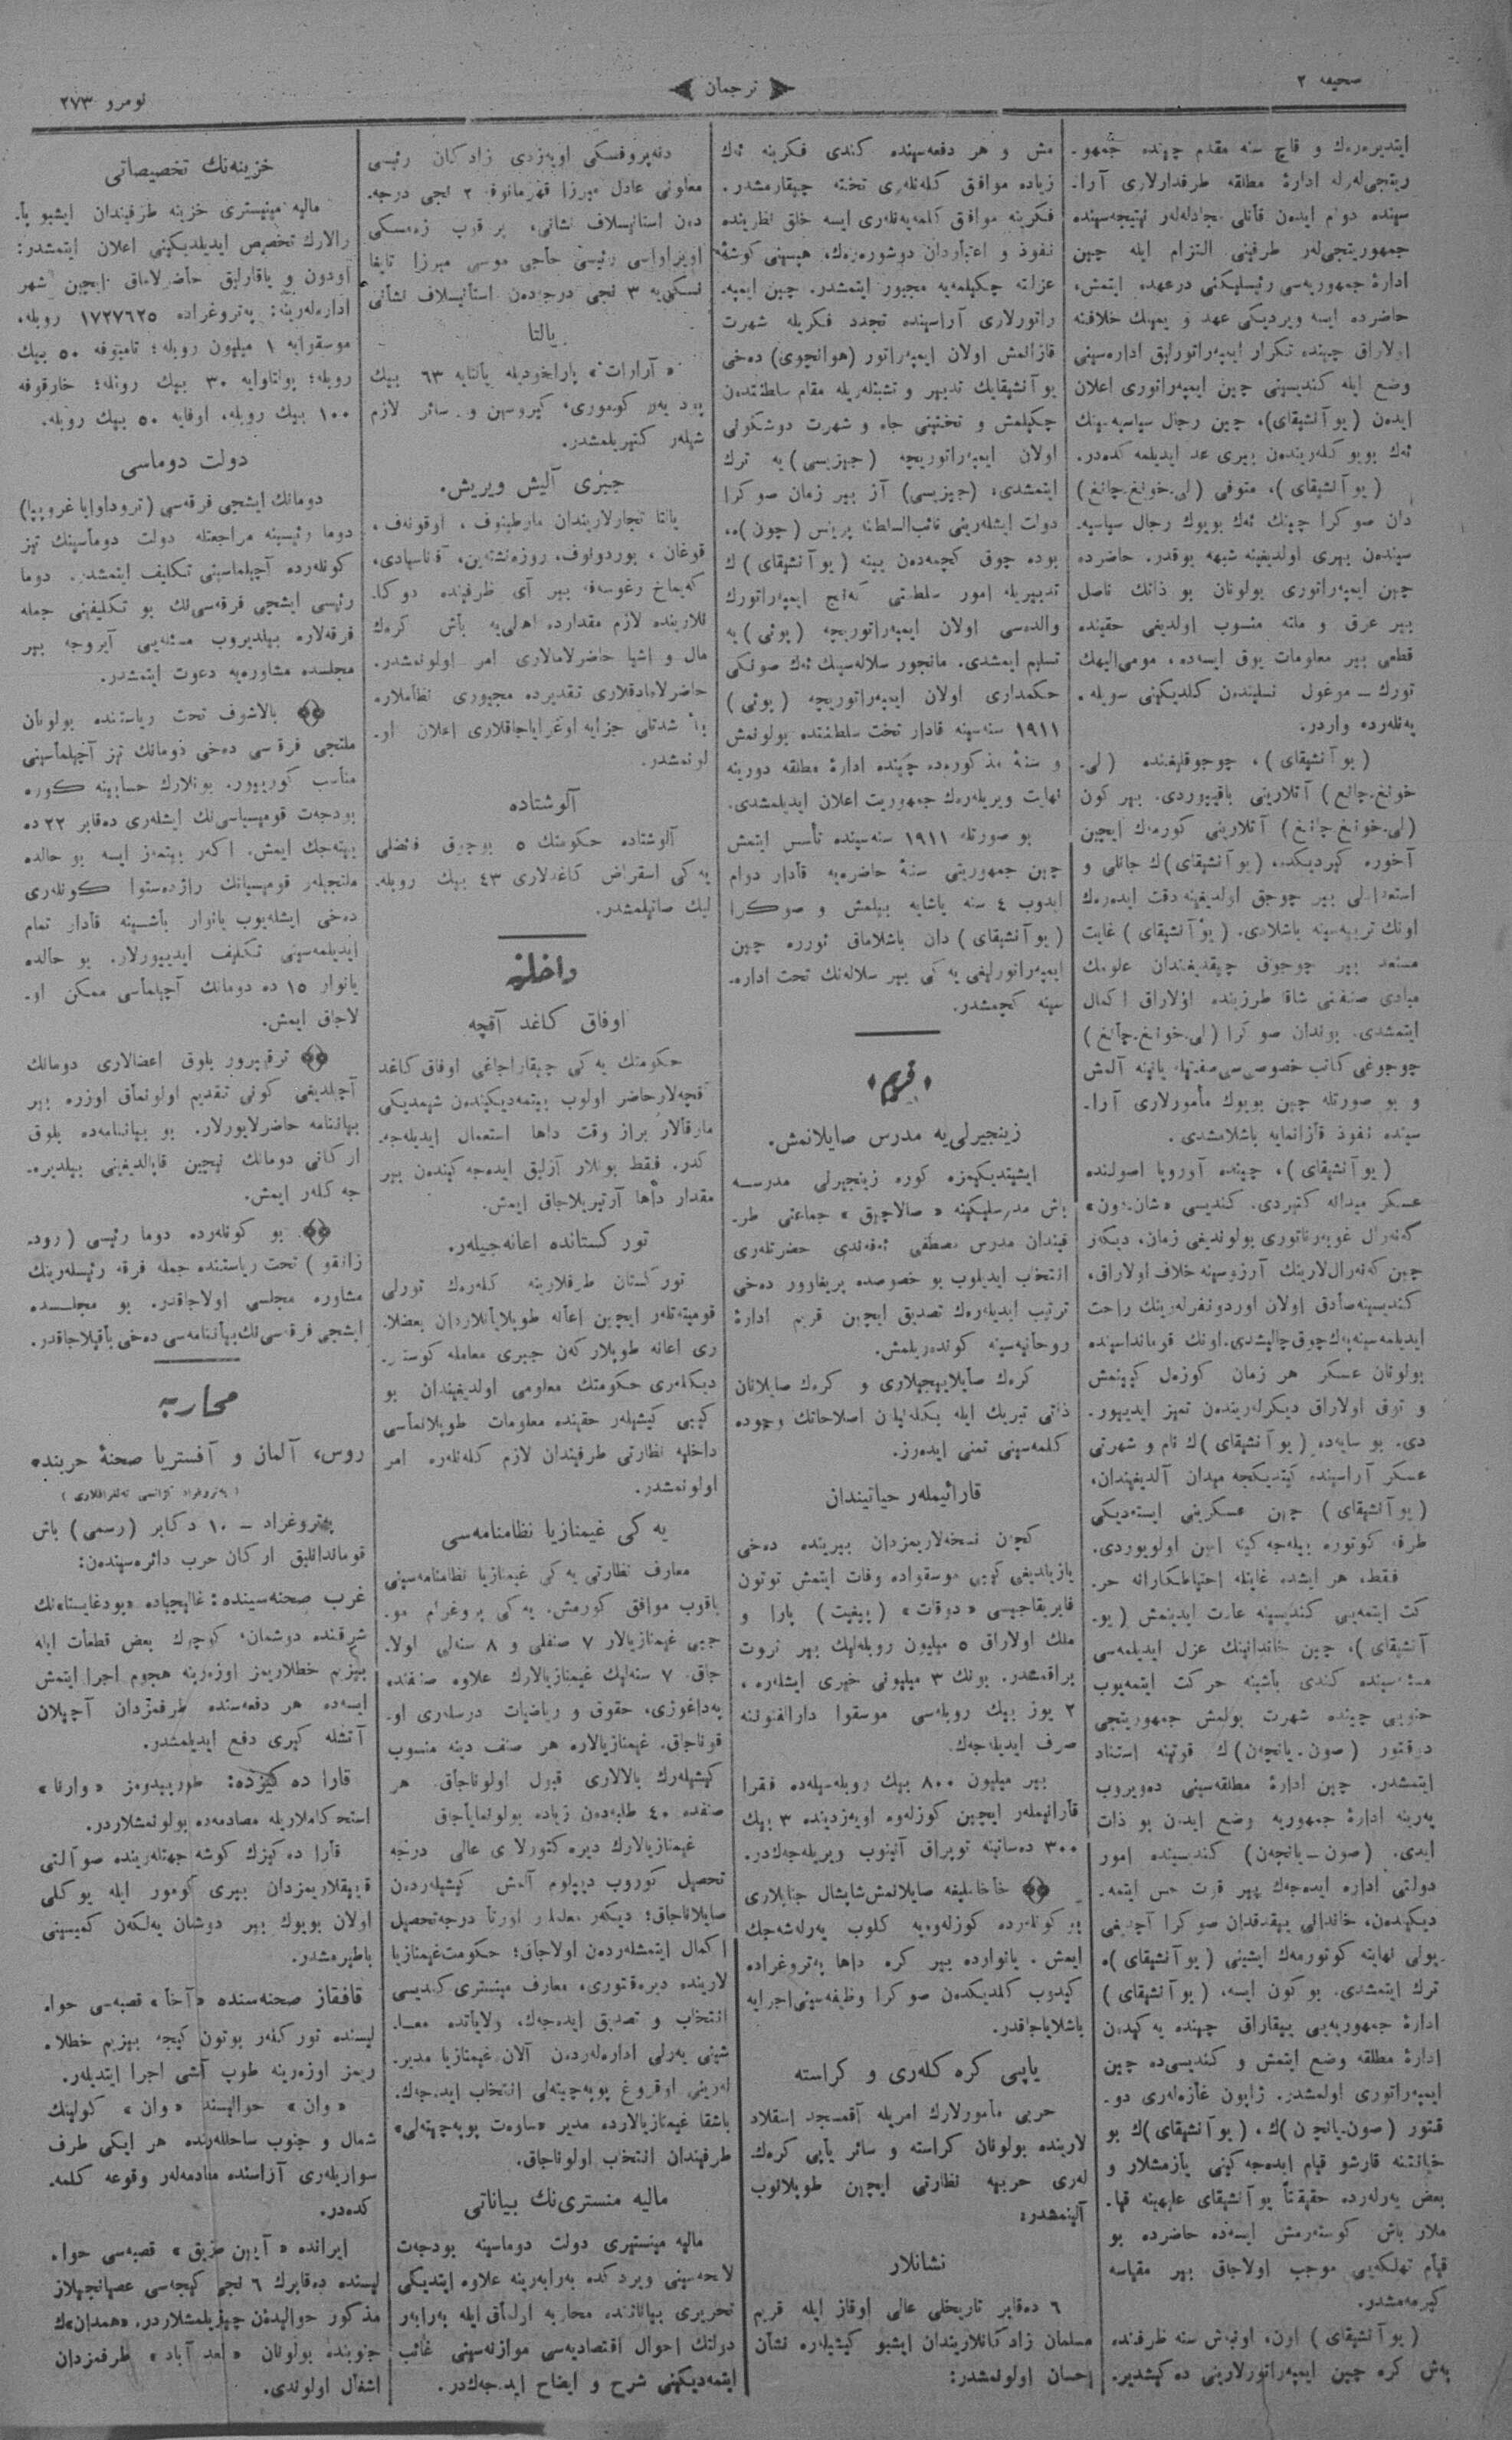 صحیفه ٢
ترجمان
نومرو ٢٧٣
ایتدیره‌رك و قاچ سنه مقدم چینده جمهو-
ریتجی‌لرله ادارۀ مطلقه طرفدارلاری آرا-
سینده دوام ایدن قانلی مجادله‌لر نتیجه‌سینده
جمهوریتجی‌لر طرفینی التزام ایله چین
ادارۀ جمهوریه‌سی رئیسلیکنی درعهده ایتمش،
حاضرده ایسه ویردیکی عهد و یمینك خلافنه
اولاراق چینده تکرار ایمپه‌راتورلیق اداره‌سینی
وضع ایله کندیسینی چین ایمپه‌راتوری اعلان
ایدن (یوآنشیقای)، چین رجال سیاسیه‌سینك
ئه‌ك بویوکله‌ریندن بیری عد ایدیلمه‌کده‌در.
(یوآنشیقای)، متوفی (لی-خونغ-چانغ)
دان صوکرا چینك ئه‌ك بویوك رجال سیاسیه-
سیندن بیری اولدیغینه شبهه یوقدر. حاضرده
چین ایمپه‌راتوری بولونان بو ذاتك ناصل
بیر عرق و ملته منسوب اولدیغی حقینده
قطعی بیر معلومات یوق ایسه‌ده، مومی‌الیهك
تورك - موغول نسلیندن کلدیکینی سویله-
یه‌نله‌رده واردر.
(یوآنشیقای)، چوجوقلیغنده (لی-
خونغ-چانغ) آتلارینی باقییوردی. بیر کون
(لی-خونغ-چانغ) آتلارینی کورمك ایچین
آخوره کیردیکده، (یوآنشیقای)ك جانلی و
استعدادلی بیر چوجق اولدیغینه دقت ایده‌رك
اونك تربیه‌سینه باشلادی. (یوآنشیقای) غایت
مستعد بیر چوجوق چیقدیغندان علومك
مبادی صنفنی شاقا طرزینده اؤلاراق اکمال
ایتمشدی. بوندان صوکرا (لی-خونغ-چانغ)
چوجوغی کاتب خصوصی‌سی صفتیله یانینه آلمش
و بو صورتله چین بویوك مأمورلاری آرا-
سینده نفوذ قازانمایه باشلامشدی.
(یوآنشیقای)، چینده آوروپا اصولنده
عسکر میدانه کتیردی. کندیسی «شان‌دون»
که‌نه‌رال غوبه‌رناتوری بولوندیغی زمان، دیکه‌ر
چین که‌نه‌رال‌لارینك آرزوسینه خلاف اولاراق،
کندیسینه صادق اولان اوردو نفرله‌رینك راحت
ایدیلمه‌سینه‌په‌ك چوق چالیشدی. اونك قوماندا‌سینده
بولونان عسکر هر زمان کوزه‌ل کیینمش
و توق اولاراق دیکرله‌ریندن تمیز ایدییور-
دی. بو سایه‌ده (یوآنشیقای)ك نام و شهرتی
عسکر آراسینده کیتدیکجه میدان آلدیغیندان،
(یوآنشیقای) چین عسکرینی ایسته‌دیکی
طرفه کوتوره بیله‌جه‌کینه امین اولویوردی.
فقط، هر ایشده غایتله احتیاطکارانه حر-
کت ایتمه‌یی کندیسینه عادت ایدینمش (یو-
آنشیقای)، چین خاندانینك عزل ایدیلمه‌سی
مسئله‌سینده کندی باشینه حرکت ایتمه‌یوب
جنوبی چینده شهرت بولمش جمهوریتجی
دوقتور (صون-یانچه‌ن)ك قوتینه استناد
ایتمشدر. چین ادارۀ مطلقه‌سینی ده‌ویروب
یه‌رینه ادارۀ جمهوریه وضع ایدن بو ذات
ایدی. (صون-یانچه‌ن) کندیسینده امور
دولتی اداره ایده‌جه‌ك بیر قوت حس ایتمه-
دیکیندن، خاندانی ییقدقدان صوکرا آچدیغی
یولی نهایته کوتورمه‌ك ایشینی (یوآنشیقای)ه
ترك ایتمشدی. بوکون ایسه، (یوآنشیقای)
ادارۀ جمهوریه‌یی ییقاراق چینده یه‌کیدن
ادارۀ مطلقه وضع ایتمش و کندیسی‌ده چین
ایمپه‌راتوری اولمشدر. ژاپون غازه‌ته‌لری دو-
قتور (صون-یانچه‌ن)ك، (یوآنشیقای)ك بو
خیانتنه قارشو قیام ایده‌جه‌کینی یازمشلار و
بعض یه‌رله‌رده حقیقتاً یوآنشیقای علیهینه قیا-
ملار باش کوسته‌رمش ایسه‌ده حاضرده بو
قیام تهلکه‌یی موجب اولاجاق بیر مقیاسه
کیرمه‌مشدر.
(یوآنشیقای) اون، اونبش سنه ظرفنده
به‌ش کره چین ایمپه‌راتورلارینی ده‌کیشدیر-
مش و هر دفعه‌سینده کندی فکرینه ئه‌ك
زیاده موافق کله‌نله‌ری تخته چیقارمشدر.
فکرینه موافق کلمه‌یه‌نله‌ری ایسه خلق نظرینده
نفوذ و اعتباردان دوشوره‌ره‌ك، هپسینی کوشۀ
عزلته چکیلمه‌یه مجبور ایتمشدر. چین ایمپه-
راتورلاری آراسینده تجدد فکریله شهرت
قازانمش اولان ایمپه‌راتور (هوانچوی) ده‌خی
یوآنشیقایك تدبیر و تشبثله‌ریله مقام سلطنتدن
چکیلمش و تختینی جاه و شهرت دوشکونی
اولان ایمپه‌راتوریچه (جیزیسی)یه ترك
ایتمشدی؛ (جیزیسی) آز بیر زمان صوکرا
دولت ایشله‌رینی نائب‌السلطنه پرنس (چون)ه،
بوده چوق کچمه‌دن یینه (یوآنشیقای)ك
تدبیریله امور سلطنتی که‌نج ایمپه‌راتورك
والده‌سی اولان ایمپه‌راتوریچه (یونی)یه
تسلیم ایتمشدی. مانجور سلاله‌سینك ئه‌ك صونکی
حکمداری اولان ایمپه‌راتوریچه (یونی)
١٩١١ سنه‌سینه قادار تخت سلطنتده بولونمش
و سنۀ مذکوره‌ده چینده ادارۀ مطلقه دورینه
نهایت ویریله‌رك جمهوریت اعلان ایدیلمشدی.
بو صورتله ١٩١١ سنه‌سینده تأسس ایتمش
چین جمهوریتی سنۀ حاضره‌یه قادار دوام
ایدوب ٤ سنه یاشایه بیلمش و صوکرا
(یوآنشیقای)دان باشلاماق ئوزره چین
ایمپه‌راتورلیغی یه‌کی بیر سلاله‌نك تحت اداره-
سینه کچمشدر.
قریم
زینجیرلی‌یه مدرس صایلانمش.
ایشیتدیکیمزه کوره زینجیرلی مدرسه
باش مدرسلیکینه «صالاچیق» جماعتی طر-
فیندان مدرس مصطفی ئه‌فه‌ندی حضرتله‌ری
انتخاب ایدیلوب بو خصوصده پریغاوور ده‌خی
ترتیب ایدیله‌رك تصدیق ایچین قریم ادارۀ
روحانیه‌سینه کونده‌ریلمش.
کرك صایلاییجیلاری و کرك صایلانان
ذاتی تبریك ایله بکله‌نیلن اصلاحاتك وجوده
کلمه‌سینی تمنی ایده‌رز.
قارائیمله‌ر حیاتیندان
کچن نسخه‌لاریمزدان بیرینده ده‌خی
یازیلدیغی کیبی موسقواده وفات ایتمش توتون
فابریقاجیسی «دوقات» (پیغیت) پارا و
ملك اولاراق ٥ میلیون روبله‌لیك بیر ثروت
براقمشدر. بونك ٣ میلیونی خیری ایشله‌ره،
٢ یوز بیك روبله‌سی موسقوا دارالفنوننه
صرف ایدیله‌جه‌ك.
بیر میلیون ٨٠٠ بیك روبله‌سیله‌ده فقرا
قارائیمله‌ر ایچین کوزله‌وه اویه‌زدینده ٣ بیك
٣٠٠ ده‌ساتینه توپراق آلینوب ویریله‌جه‌کدر.
خاخاملیغه صایلانمش شاپشال جنابلاری
بو کونله‌رده کوزله‌وه‌یه کلوب یه‌رله‌شه‌جك
ایمش. یانوارده بیر کره داها په‌تروغراده
کیدوب کلدیکدن صوکرا وظیفه‌سینی اجرایه
باشلایاجاقدر.
یاپی کره‌کله‌ری و کراسته
حربی مأمورلارك امریله آقمسجد اسقلاد
لارینده بولونان کراسته و سائر یاپی کرك-
له‌ری حربیه نظارتی ایچین طوپلانوب
آلینمشدر.
نشانلار
٦ ده‌قابر تاریخلی عالی اوقاز ایله قریم
مسلمان زادکانلاریندان ایشبو کیشیلره نشان
احسان اولونمشدر:
دنه‌پروفسکی اویه‌زدی زادکان رئیسی
معاونی عادل میرزا قهرمانوف ٢ نجی درجه-
دن استانیسلاف نشانی، پره‌قوپ زه‌مسکی
اوپراواسی رئیسی حاجی موسی میرزا تایغا
نسکی‌یه ٣ نجی درجه‌دن استانیسلاف نشانی
یالتا
«آرارات» پاراخودیله یالتایه ٦٣ بیك
پود یه‌ر کوموری، کیروسین و سائر لازم
شیلر کتیریلمشدر.
جبری آلیش ویریش.
یالتا تجارلاریندان مارطینوف، اوقونه‌ف،
قوغان، بوردونوف، روزه‌نشته‌ین، آفاناسیادی،
که‌یماخ رغوسه‌فه بیر آی ظرفینده دوکا-
نلارینده لازم مقدارده اهلی‌یه باش کرك
مال و اشیا حاضرلامالاری امر اولونمشدر.
حاضرلامادقلاری تقدیرده مجبوری نظاملاره
بناً شدتلی جزایه اوغرایاجاقلاری اعلان او-
لونمشدر.
آلوشتاده
آلوشتاده حکومتك ٥ بوچوق فائضلی
یه‌کی استقراض کاغدلاری ٤٣ بیك روبله-
لیك صاتیلمشدر.
داخلیه
اوفاق کاغد آقچه
حکومتك یه‌کی چیقاراجاغی اوفاق کاغد
آقچه‌لار حاضر اولوب بیتمه‌دیکیندن شیمدیکی
مارقالار براز وقت داها استعمال ایدیله‌جه-
کدر. فقط بونلار آزلیق ایده‌جه‌کیندن بیر
مقدار داها آرتیریلاجاق ایمش.
تورکستانده اعانه‌جیله‌ر.
تورکستان طرفلارینه کله‌رك تورلی
قومیته‌تله‌ر ایچین اعانه طوپلایانلاردان بعضلا-
ری اعانه طوپلارکه‌ن جبری معامله کوسته-
ردیکله‌ری حکومتك معلومی اولدیغیندان بو
کیبی کیشیلر حقینده معلومات طوپلانماسی
داخلیه نظارتی طرفیندان لازم کله‌نله‌ره امر
اولونمشدر.
یه‌کی غیمنازیا نظامنامه‌سی
معارف نظارتی یه‌کی غیمنازیا نظامنامه‌سینی
باقوب موافق کورمش. یه‌کی پروغرام مو-
جبی غیمنازیالار ٧ صنفلی و ٨ سنه‌لی اولا-
جاق. ٧ سنه‌لیك غیمنازیالارك علاوه صنفنده
په‌داغوژی، حقوق و ریاضیات درسله‌ری او-
قوناجاق. غیمنازیالاره هر صنف دینه منسوب
کیشیله‌رك بالالاری قبول اولوناجاق. هر
صنفده ٤٠ طلبه‌دن زیاده بولونمایاجاق
غیمنازیالارك دیره‌کتورلاری عالی درجه
تحصیل کوروب دیپلوم آلمش کیشیله‌ردن
صایلاناجاق؛ دیکه‌ر معلملر اورتا درجه تحصیل
اکمال ایتمشله‌ردن اولاجاق؛ حکومت غیمنازیا
لارینده دیره‌قتوری، معارف مینستری کندیسی
انتخاب و تصدیق ایده‌جه‌ك، ولایاتده معا-
شینی یه‌رلی اداره‌له‌ردن آلان غیمنازیا مدیر-
له‌رینی اوقروغ پوپه‌چیته‌لی انتخاب ایده‌جه‌ك.
باشقا غیمنازیالارده مدیر «ساوه‌ت پوپه‌چیته‌لی»
طرفیندان انتخاب اولوناجاق.
مالیه منستری‌نك بیاناتی
مالیه مینستیری دولت دوماسینه بودجه‌ت
لایحه‌سینی ویردکده به‌رابه‌رینه علاوه ایتدیکی
تحریری بیاناتنده محاربه اولماق ایله به‌رابه‌ر
دولتك احوال اقتصادیه‌سی موازنه‌سینی غائب
ایتمه‌دیکینی شرح و ایضاح ایده‌جه‌کدر.
خزینه‌نك تخصیصاتی
مالیه مینیستری خزینه طرفیندان ایشبو پا-
رالارك تخصیص ایدیلدیکینی اعلان ایتمشدر:
اودون و یاقارلیق حاضرلاماق ایچین شهر
اداره‌له‌رینه: په‌تروغراده ١٧٢٧٦٢٥ روبله،
موسقوایه ١ میلیون روبله؛ تامبوفه ٥٠ بیك
روبله؛ پولتاوایه ٣٠ بیك روبله؛ خارقوفه
١٠٠ بیك روبله، اوفایه ٥٠ بیك روبله.
دولت دوماسی
دومانك ایشجی فرقه‌سی (ترودوایا غروپپا)
دوما رئیسینه مراجعتله دولت دوماسینك تیز
کونله‌رده آچیلماسینی تکلیف ایتمشدر. دوما
رئیسی ایشجی فرقه‌سی‌نك بو تکلیفینی جمله
فرقه‌لاره بیلدیروب مسئله‌یی آیروجه بیر
مجلسده مشاوره‌یه دعوت ایتمشدر.
بالاشوف تحت ریاستنده بولونان
ملتجی فرقه‌سی ده‌خی دومانك تیز آچیلماسینی
مناسب کورییور. بونلارك حسابینه کوره
بودجه‌ت قومیسیاسی‌نك ایشله‌ری ده‌قابر ٢٢ده
بیته‌جك ایمش. اکه‌ر بیتمه‌ز ایسه بو حالده
ملتجیله‌ر قومیسیانك راژده‌ستوا کونله‌ری
ده‌خی ایشله‌یوب یانوار باشینه قادار تمام
ایدیلمه‌سینی تکلیف ایدییورلار. بو حالده
یانوار ١٥ده دومانك آچیلماسی ممکن او-
لاجاق ایمش.
ترقیپرور بلوق اعضالاری دومانك
آچیلدیغی کونی تقدیم اولونماق اوزره بیر
بیاننامه حاضرلایورلار. بو بیاننامه‌ده بلوق
ارکانی دومانك نیچین قاپالدیغینی بیلدیره-
جه‌کله‌ر ایمش.
بو کونله‌رده دوما رئیسی (رود-
زانقو) تحت ریاستنده جمله فرقه رئیسله‌رینك
مشاوره مجلسی اولاجاقدر. بو مجلسده
ایشجی فرقه‌سی‌نك بیاننامه‌سی ده‌خی باقیلاجاقدر.
محاربه
روس، آلمان و آفستریا صحنۀ حربنده
(په‌تروغراد آژانسی ته‌لغرافلاری)
په‌تروغراد - ١٠ دکابر (رسمی) باش
قومانداللیق ارکان حرب دائره‌سیندن:
غرب صحنه‌سینده: غالیچیاده «بودغایستا»نك
شرقنده دوشمانك کوچوك بعض قطعات ایله
بیزیم خطلاریمز اوزه‌رینه هجوم اجرا ایتمش
ایسه‌ده هر دفعه‌سنده طرفمزدان آچیلان
آتشله کیری دفع ایدیلمشدر.
قارا ده‌کیزده: طورپیدومز «وارنا»
استحکاملاریله مصادمه‌ده بولونمشلاردر.
قارا ده‌کیزك کوشه جهتله‌رینده صوآلتی
قاییقلاریمزدان بیری کومور ایله یوکلی
اولان بویوك بیر دوشمان یه‌لکه‌ن کمیسینی
باطیرمشدر.
قافقاز صحنه‌سنده «آخا» قصبه‌سی حوا-
لیسنده تورکله‌ر بوتون کیجه بیزیم خطلا-
ریمز اوزه‌رینه طوپ آتشی اجرا ایتدیلر.
«وان» حوالیسنده «وان» کولینك
شمال و جنوب ساحللرنده هر ایکی طرف
سواریله‌ری آراسنده مصادمه‌له‌ر وقوعه کلمه-
کده‌در.
ایرانده «آبین‌طریق» قصبه‌سی حوا-
لیسنده ده‌قابرك ٦ نجی کیجه‌سی عصیانجیلار
مذکور حوالیدن چیقاریلمشلاردر. «همدان»ك
جنوبنده بولونان «اسعدآباد» طرفمزدان
اشغال اولوندی.